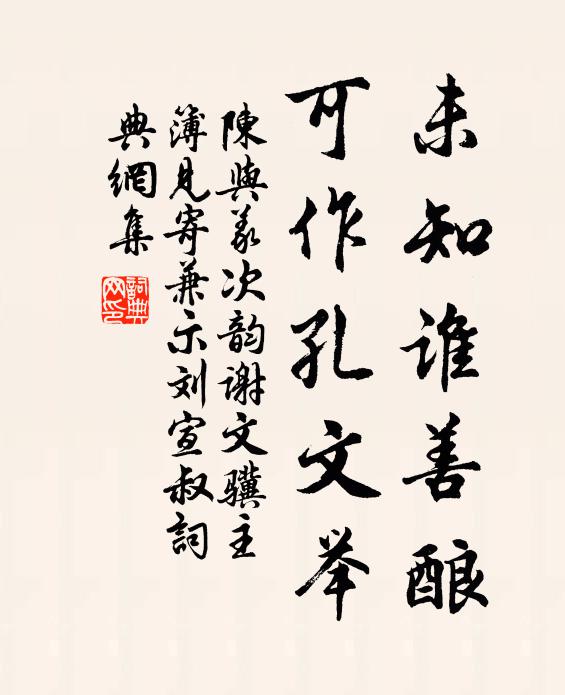 未知谁善酿
可作孔文举
陳與义次韵谢文骥主
簿见寄兼示刘宣叔詞
典網集
詞典网印